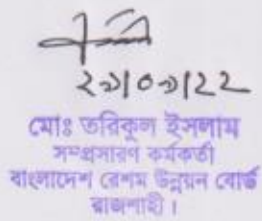 ২১/০৩/২২
মোঃ তরিকুল ইসলাম
সম্প্রসারণ কর্মকর্তা
বাংলাদেশ রেশম উন্নয়ন বোর্ড
রাজশাহী।